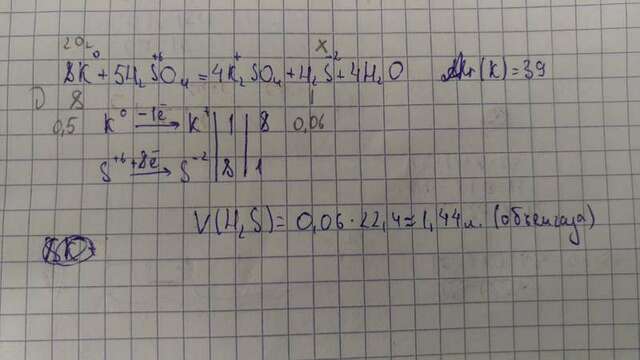 20г x
8K⁰ + 5H₂S⁺⁶O₄ = 4K₂⁺SO₄ + H₂S⁻² + 4H₂O Ar(K) = 39
8 1
0,5 K⁰ −1ē → K⁺ | 1 | 8 0,06
S⁺⁶ +8ē → S⁻² | 8 | 1
V(H₂S) = 0,06 · 22,4 ≈ 1,44 л. (объем газа)